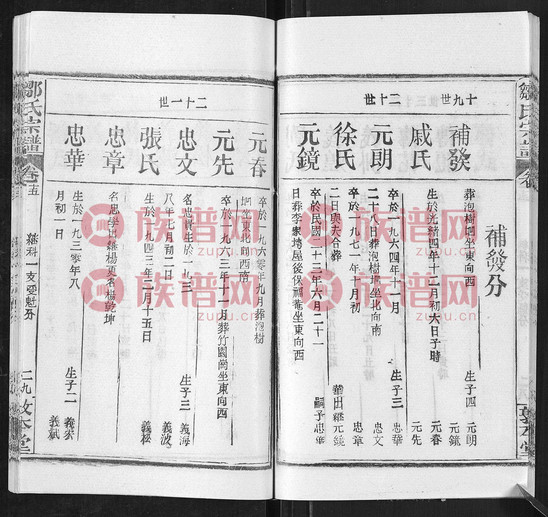 補發分
十九世
補發
葬泡樹堋坐東向西
生子四
元朗
元鏡
元春
元先
戚氏
生於光緒四年十二月初六日子時
二十世
元朗
卒於一九六四年十一月
二十八日葬泡樹堋坐北向南
生子三
忠華
忠章
忠文
徐氏
卒於一九七一年十月初
二日與夫合葬
元鏡
卒於民國三十三年六月二十一
日葬李家塆屋後保福菴坐東向西
嗣子忠華
二十一世
元春
卒於一九六零年九月葬泡樹
堋坐東向西南
元先
葬竹園崗坐東向西
忠文
名忠賢生於一九三
八年七月初二日
生子三
義海
義波
義松
張氏
生於一九四三年二月十五日
忠章
忠華
生於一九三零年八
月初一日
生子二
義宏
義斌
鄒氏宗譜
卷三五
二九
族谱网
zupu.cn